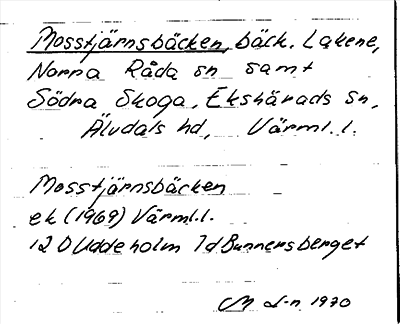 Mosstjärnsbäcken, bäck. Lakene,
Norra Råda sn samt
Södra Skoga, Ekshärads sn,
Älvdals hd, Värml. l.
Mosstjärnsbäcken
ek (1969) Värml.l.
12 D Uddeholm 7d Bunnersberget
M L-n 1970